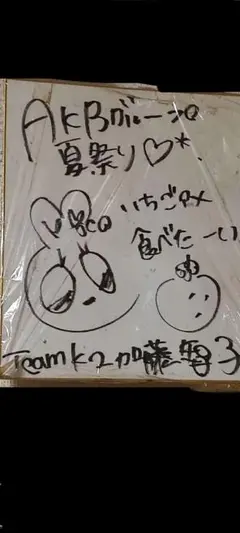 AKBグループ
夏祭り♡*.
いちごアメ
食べたーい
TeamK2 加藤
子